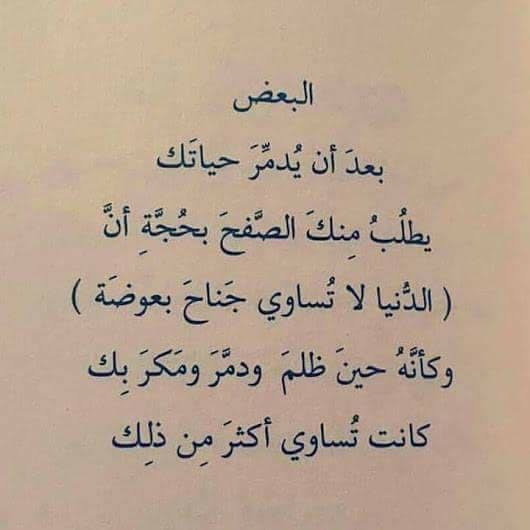 البعض
بعدَ أن يُدمِّرَ حياتَك
يطلُبُ مِنكَ الصَّفحَ بحُجَّةِ أنَّ
( الدُّنيا لا تُساوي جَناحَ بعوضَة )
وكأنَّهُ حينَ ظلمَ ودمَّرَ ومَكرَ بِك
كانت تُساوي أكثرَ مِن ذلِك